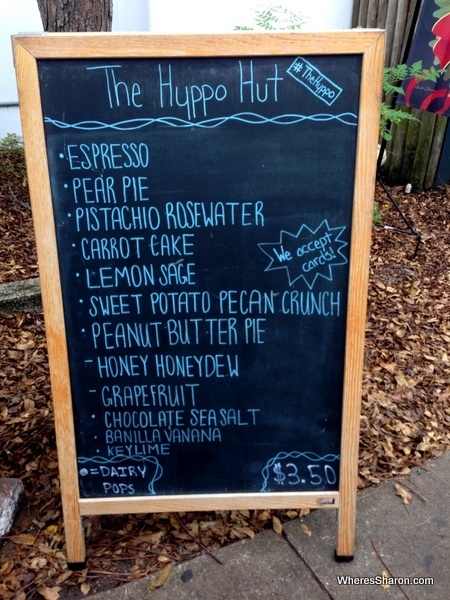 The Hyppo Hut
#TheHyppo
• ESPRESSO
• PEAR PIE
• PISTACHIO ROSEWATER
• CARROT CAKE
We accept
cards!
• LEMON SAGE
• SWEET POTATO PECAN CRUNCH
• PEANUT BUTTER PIE
- HONEY HONEYDEW
- GRAPEFRUIT
• CHOCOLATE SEA SALT
• BANILLA VANANA
• KEYLIME
• = DAIRY
POPS
$3.50
WheresSharon.com